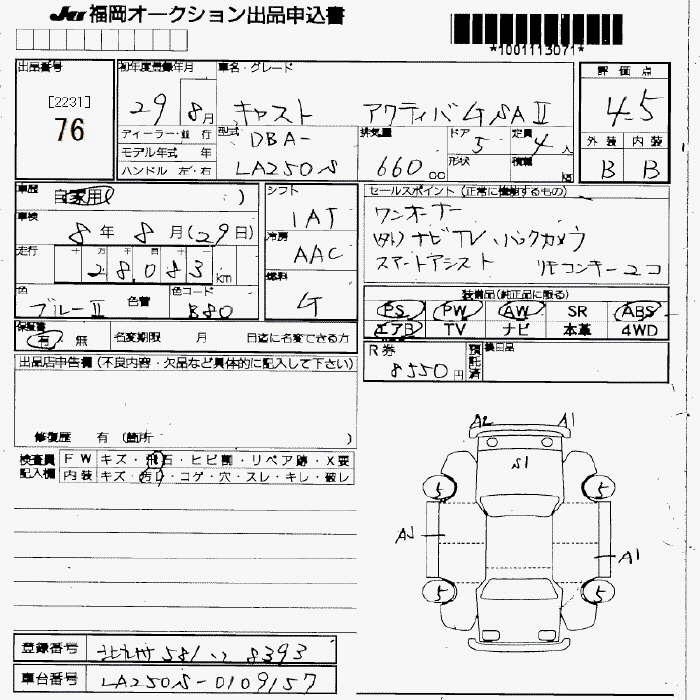 JU 福岡オークション出品申込書
*1001113071*
出品番号 初年度登録年月 車名・グレード 評価点
[2231]
76
29 8月 キャスト アクティバ G SA II 4.5
ディーラー・並行 型式 DBA- 排気量 ドア 5 定員 4人 外装 内装
モデル年式 年
ハンドル 左・右 LA250S 660 cc 形状 積載 kg B B
車歴 自家用 ) シフト セールスポイント(正常に機能するもの)
車検 8年 8月(29日) 1AT ワンオーナー
冷房 AAC ナビTV バックカメラ
走行 十 万 千 百 十 28,083 km スマートアシスト リモコンキー2コ
燃料 G
色 ブルーII 色替 色コード B80 装備品(純正品に限る)
PS PW AW SR ABS
エアB TV ナビ 本革 4WD
保証書 有・無 名変期限 月 日迄に名変できる方
R券 8550円 預託済 後日品
出品店申告欄(不良内容・欠品など具体的に記入して下さい)
修復歴 有(箇所 )
検査員 FW キズ・飛石・ヒビ割・リペア跡・X要
記入欄 内装 キズ・汚れ・コゲ・穴・スレ・キレ・破レ
A2 A1
S1
5 5
A1
5 5
登録番号 北九州 581 い 8393
車台番号 LA250S-0109157